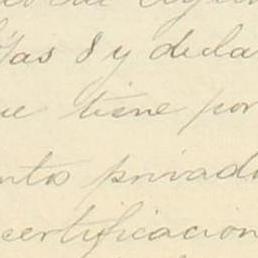 las 8 y de la
ue tiene por
ntos privad
certificacion